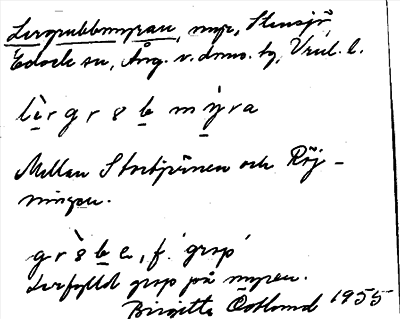 Lergrubbmyran, myr, Stensjö,
Edsele sn, Ång. v. dms. hg, Vnl. l.
lèrgr8b mỳra
Mellan Stortjärnen och Röj-
ningen.
gr8̀be, f. 'grop'
Lerfylld grop på myren.
Birgitta Östlund 1955